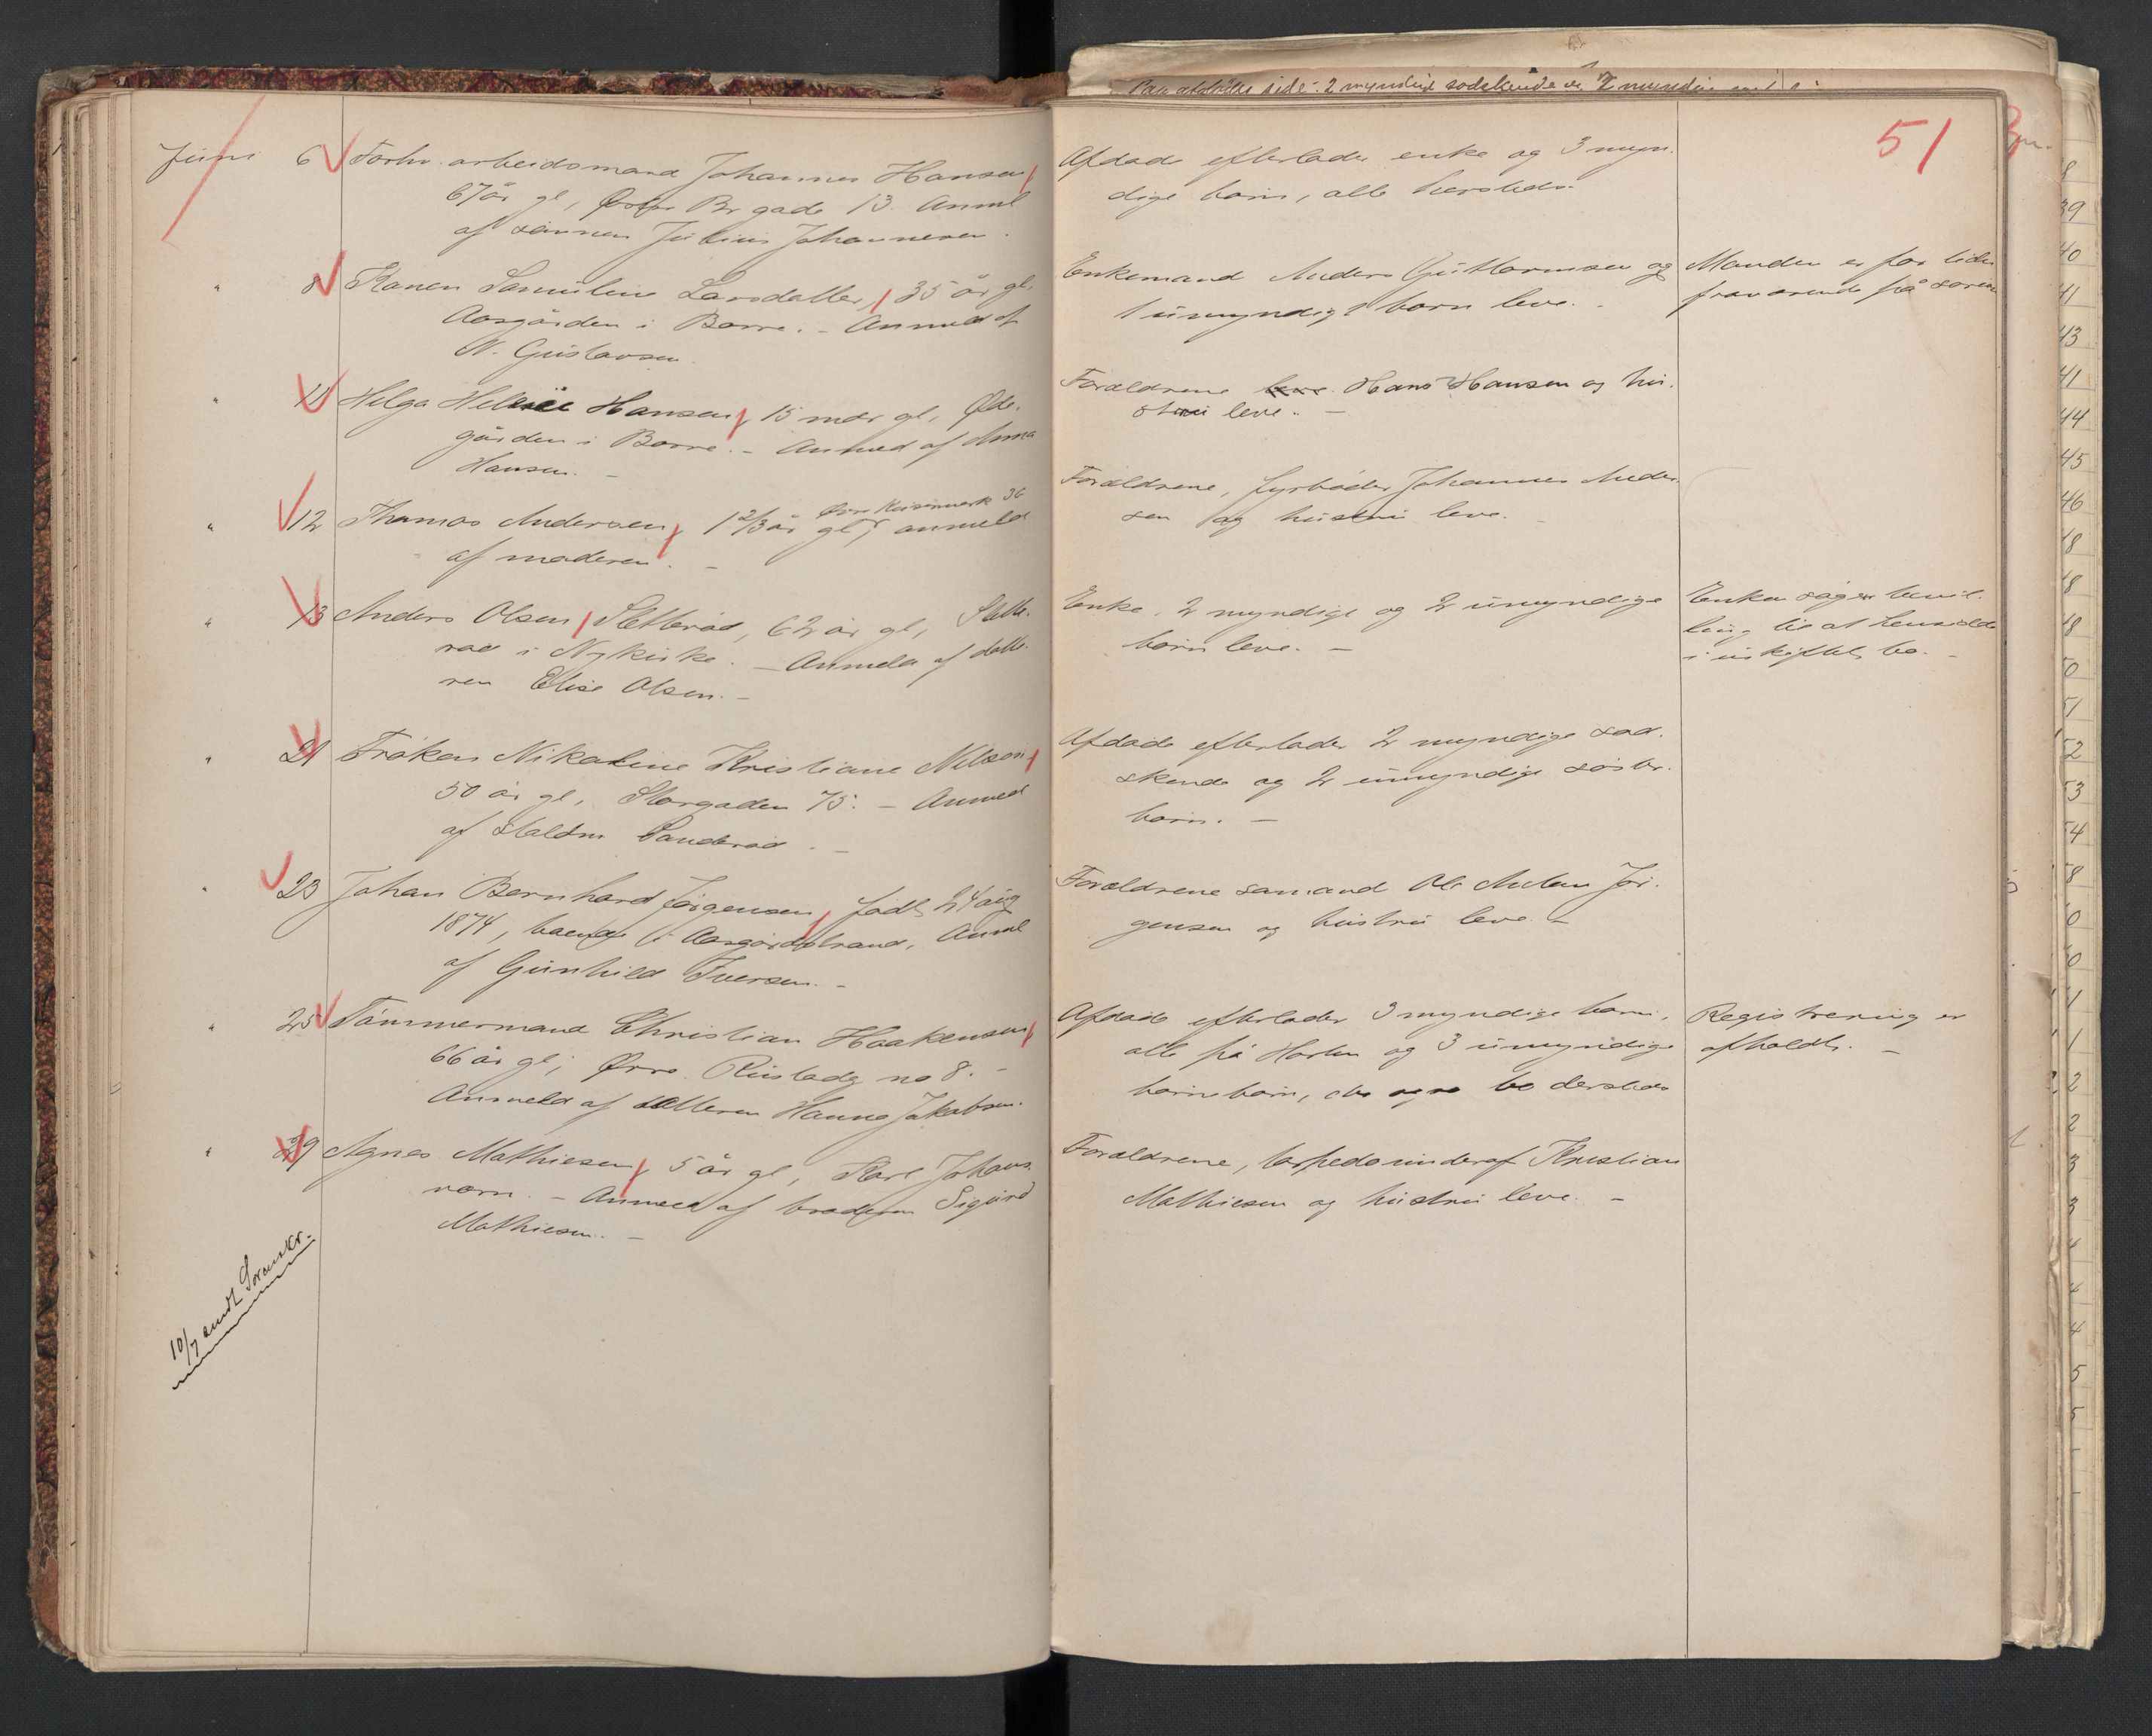 51
Juni 6 Forhv. arbeidsmand Johannes Hansen,
67 år gl, Østre Br.gade 13. Anml
af sønnen Julius Johannesen.
Afdøde efterlader enke og 3 myn-
dige børn, alle hersteds.
" 8 Konen Samuline Larsdatter, 35 år gl.
Aasgården i Borre. - Anmeld af
N. Gustavsen.
Enkemand Anders Guttormsen og
1 umyndigt barn leve. -
Manden er for tiden
fraværende på søreise
" 11 Helga Hansen, 15 mdr gl, Øde-
gården i Borre. - Anmeld af Anna
Hansen. -
Forældrene leve Hans Hansen og hu-
stru leve. -
" 12 Thomas Andersen, 1 2/3 år gl, anmeld
Øvre Keisemark 36
af moderen. -
Forældrene, fyrbøder Johannes Ander-
sen og hustru leve. -
" 13 Anders Olsen, Sletterød, 62 år gl, Slette-
rød i Nykirke. - Anmeldt af datte-
ren Elise Olsen. -
Enke, 2 myndige og 2 umyndige
børn leve. -
Enken søger bevil-
ling til at hensidde
i uskiftet bo. -
" 21 Frøken Nikoline Kristiane Nilson,
50 år gl, Storgaden 75. - Anmeld
af Sanderød. -
Afdøde efterlader 2 myndige sød-
skende og 2 umyndige søster-
børn. -
" 23 Johan Bernhard Jörgensen, født 24 aug
1874, boende i Aasgårdstrand, Anml
af Gunhild Iversen. -
Forældrene sømand Ole Anton Jör-
gensen og hustru leve -
" 25 Tömmermand Christian Haakensen,
66 år gl, Øvre no 8. -
Anmeld af datteren Hanna Jakobsen.
Afdøde efterlader 3 myndige børn,
alle på Horten og 3 umyndige
børnebørn, der også bo dersteds
Registrering er
afholdt. -
" 29 Agnes Mathiesen, 5 år gl, Karl Johans-
værn. - Anmeld af broderen Sigurd
Mathiesen. -
Forældrene, torpedounderof Kristian
Mathiesen og hustru leve. -
10/7 sendt Sorenskr.